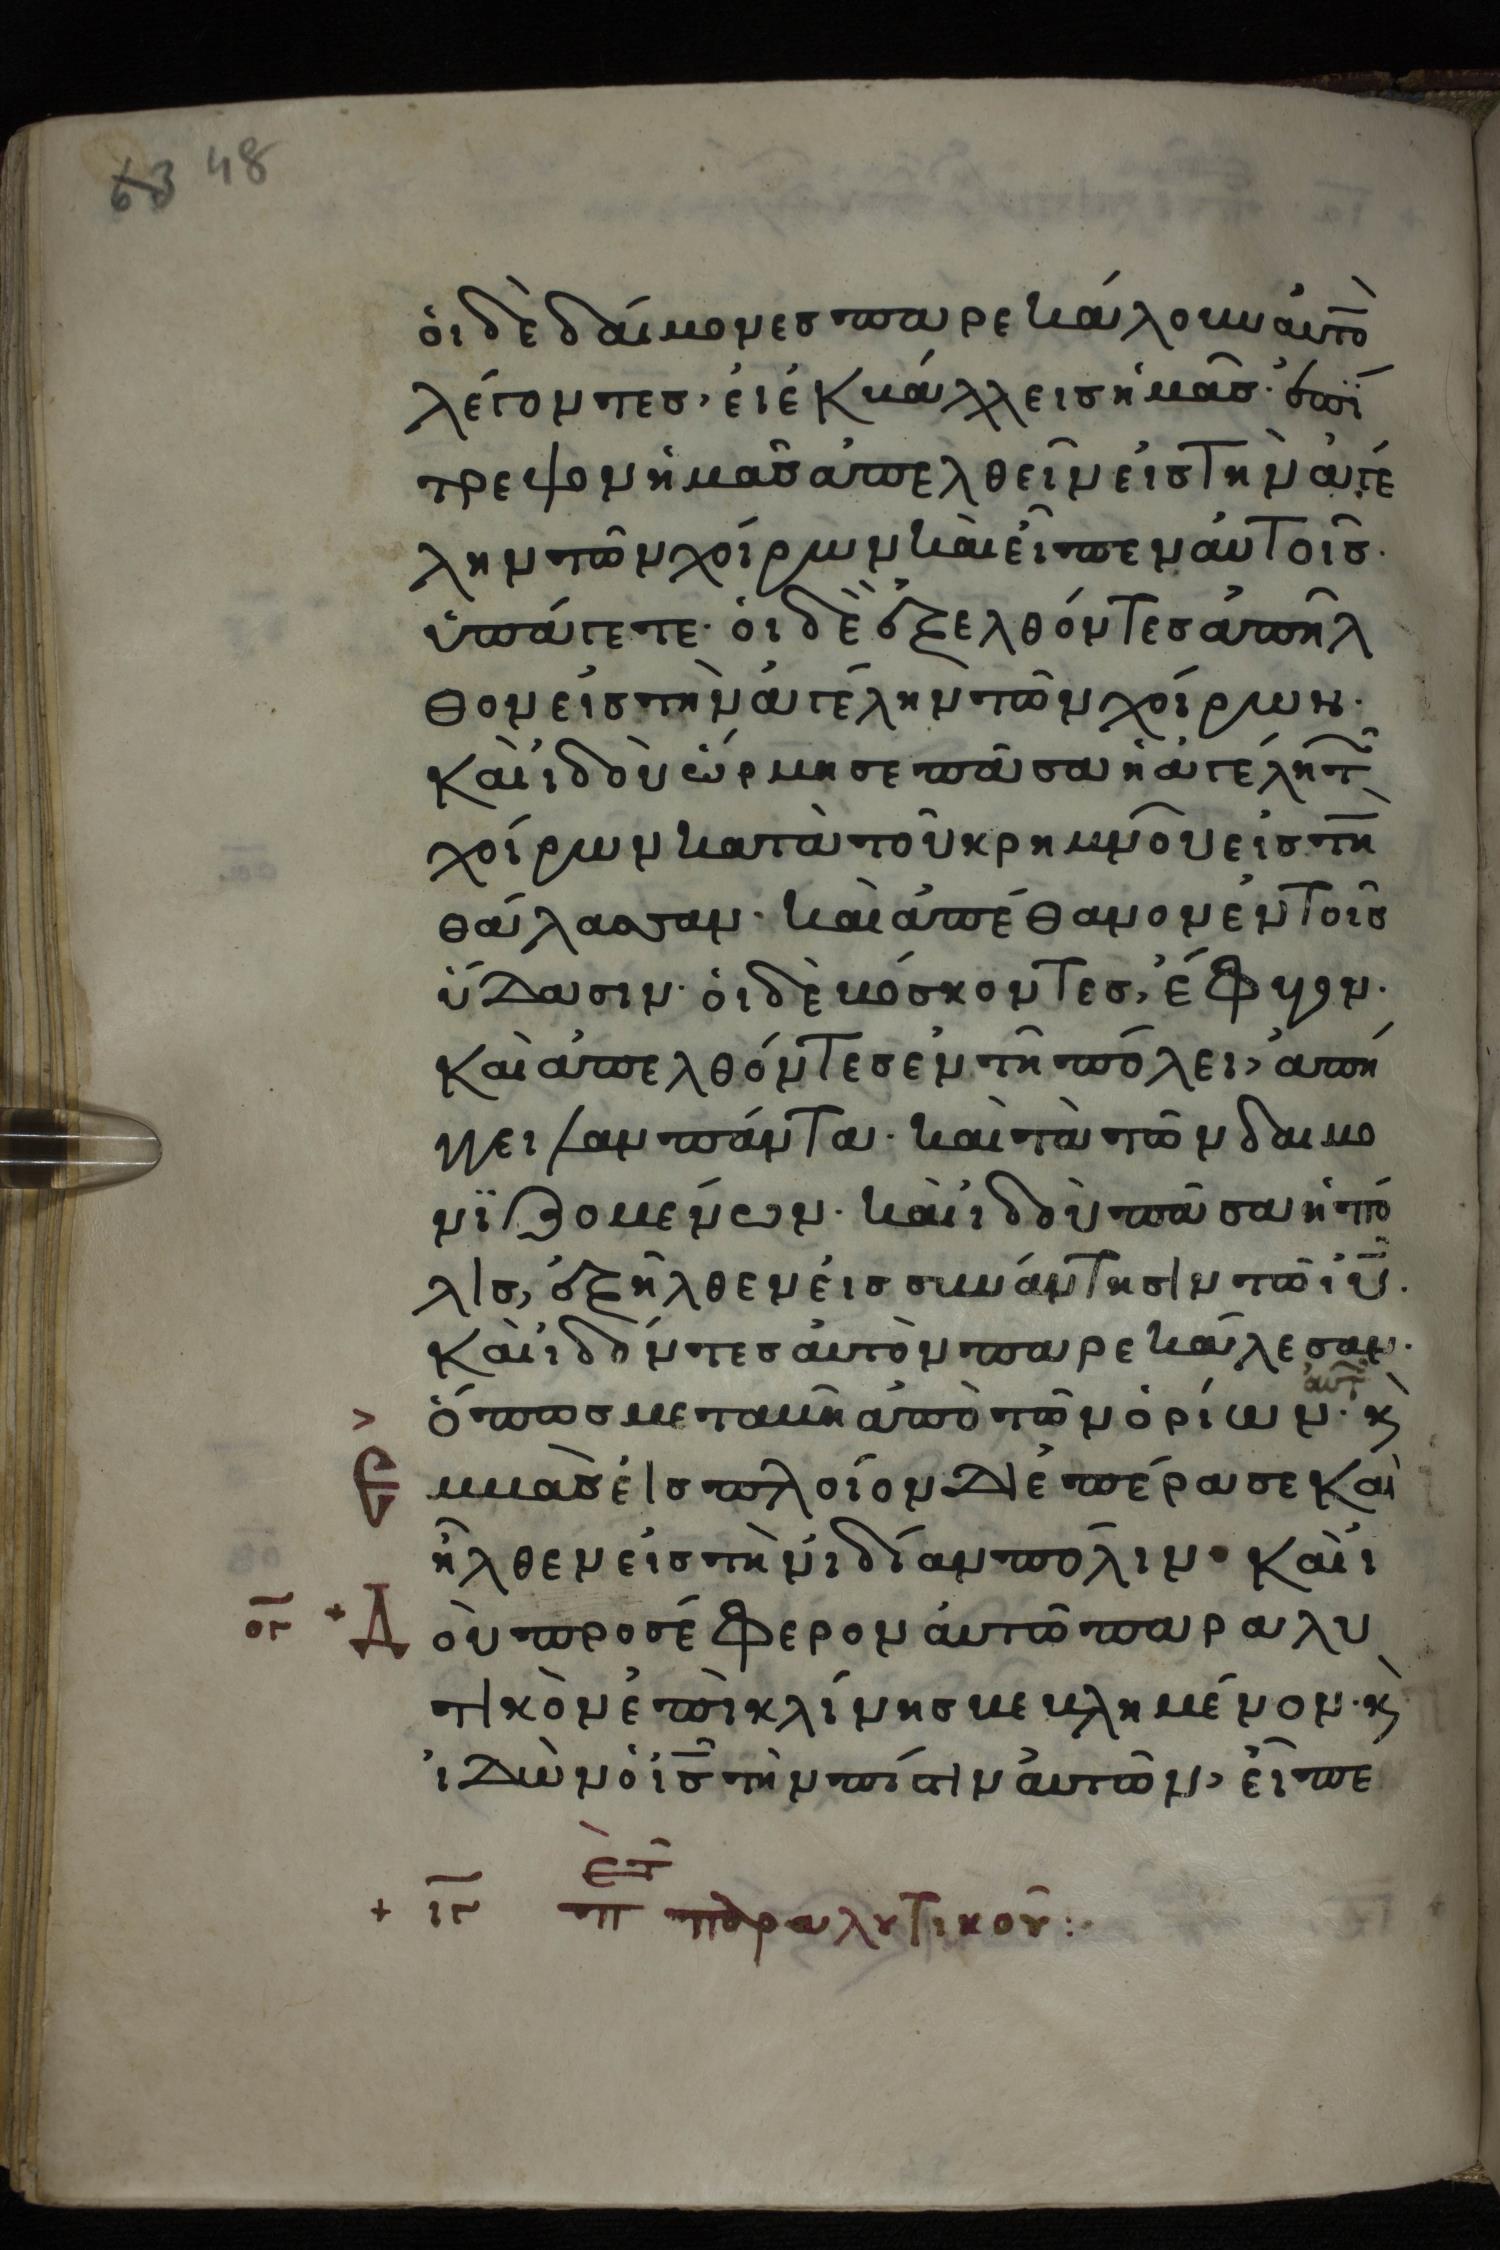 63 48
ὁι δὲ δαίμονεσ παρεκάλουν αὐτὸ
λέγοντεσ, ἐι ἐκβάλλεισ ἡμᾶσ· ἐπί
τρεψον ἡμᾶσ ἀπελθεῖν εἰσ τὴν ἀγέ
λην τῶν χοίρων καὶ εἶπεν αὐτοῖσ·
ὑπάγετε· ὁι δὲ ἐξελθόντεσ ἀπῆλ
θον εἰσ τὴν ἀγέλην τῶν χοίρων·
καὶ ἰδοὺ ὥρμησε πᾶσα ἡ ἀγέλη τῶ
χοίρων κατὰ τοῦ κρημνοῦ εἰσ τὴ
θάλασσαν· καὶ ἀπέθανον ἐν τοῖσ
ὕδασιν· ὁι δὲ βόσκοντεσ, ἔφυγον·
καὶ ἀπελθόντεσ ἐν τῆ πόλει, ἀπή
γγειλαν πάντα· καὶ τὰ τῶν δαιμο
νϊζομένων· καὶ ἰδοὺ πᾶσα ἡ πό
λισ, ἐξῆλθεν εἰσ συνάντησιν τῶ ἰῦ·
καὶ ἰδόντεσ αὐτὸν παρεκάλεσαν·
ὅπωσ μεταβῆ ἀπὸ τῶν ὁρίων· αὐτῶ κ(
> Ε μβὰσ ἐισ πλοίον Διεπέρασε καὶ
ἦλθεν εἰσ τὴν ἰδίαν πόλιν· καὶ ἰ
ογ + Δ οὺ προσέφερον ἀυτῶ παραλυ
τικὸν ἐπὶ κλίνησ βεβλημένον· κ(
ἰδὼν ὁ ἰσ τὴν πίστιν ἀυτῶν, εἶπε
+ ιγ π ε τ παραλυτικοῦ: